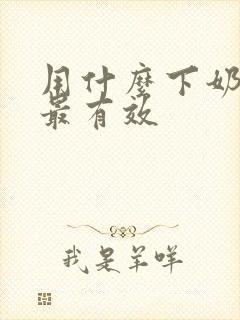 用什麼下奶
最有效
我是羊咩